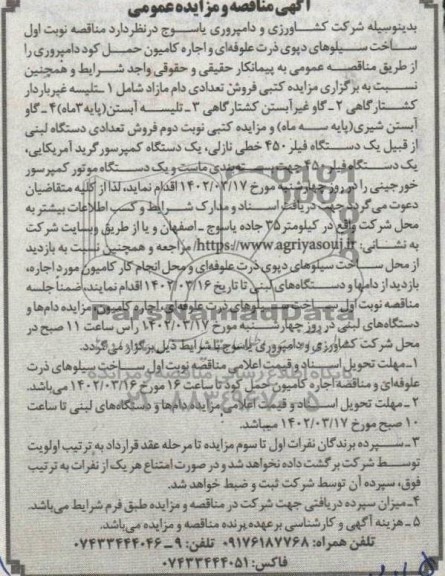 آگهی مناقصه و مزایده عمومی
بدینوسیله شرکت کشاورزی و دامپروری یاسوج درنظر دارد مناقصه نوبت اول
ساخت سیلوهای دپوی ذرت علوفه‌ای و اجاره کامیون حمل کود دامپروری را
از طریق مناقصه عمومی به پیمانکار حقیقی و حقوقی واجد شرایط و همچنین
نسبت به برگزاری مزایده کتبی فروش تعدادی دام مازاد شامل ۱-تلیسه غیرباردار
کشتارگاهی ۲-گاو غیرآبستن کشتارگاهی ۳-تلیسه آبستن(پایه۳ماه) ۴-گاو
آبستن شیری(پایه سه ماه) و مزایده کتبی نوبت دوم فروش تعدادی دستگاه لبنی
از قبیل یک دستگاه فیلر ۴۵۰ خطی نازلی، یک دستگاه کمپرسور گرید آمریکایی،
یک دستگاه فیلر ۴۵۰ جهت بسته‌بندی ماست و یک دستگاه موتور کمپرسور
خورجینی را در روز چهارشنبه مورخ ۱۴۰۲/۰۳/۱۷ اقدام نماید، لذا از کلیه متقاضیان
دعوت می‌گردد جهت دریافت اسناد و مدارک شرایط و کسب اطلاعات بیشتر به
محل شرکت واقع در کیلومتر۳۵ جاده یاسوج-اصفهان و یا از طریق وبسایت شرکت
به نشانی: https://www.agriyasouj.ir/ مراجعه و همچنین نسبت به بازدید
از محل ساخت سیلوهای دپوی ذرت علوفه‌ای و محل انجام کار کامیون مورد اجاره،
بازدید از دامها و دستگاه‌های لبنی تا تاریخ ۱۴۰۲/۰۳/۱۶ اقدام نمایند، ضمنا جلسه
مناقصه نوبت اول ساخت سیلوهای ذرت علوفه‌ای، اجاره کامیون، مزایده دام‌ها و
دستگاه‌های لبنی در روز چهارشنبه مورخ ۱۴۰۲/۰۳/۱۷ رأس ساعت ۱۱ صبح در
محل شرکت کشاورزی و دامپروری یاسوج با شرایط ذیل برگزار می‌گردد.
۱-مهلت تحویل اسناد و قیمت اعلامی مناقصه نوبت اول ساخت سیلوهای ذرت
علوفه‌ای و مناقصه اجاره کامیون حمل کود تا ساعت ۱۶ مورخ ۱۴۰۲/۰۳/۱۶ می‌باشد.
۲-مهلت تحویل اسناد و قیمت اعلامی مزایده دام‌ها و دستگاه‌های لبنی تا ساعت
۱۰ صبح مورخ ۱۴۰۲/۰۳/۱۷ میباشد.
۳-سپرده برندگان نفرات اول تا سوم مزایده تا مرحله عقد قرارداد به ترتیب اولویت
توسط شرکت برگشت داده نخواهد شد و در صورت امتناع هر یک از نفرات به ترتیب
فوق، سپرده آن توسط شرکت ثبت و ضبط خواهد شد.
۴-میزان سپرده دریافتی جهت شرکت در مناقصه و مزایده طبق فرم شرایط می‌باشد.
۵-هزینه آگهی و کارشناسی برعهده برنده مناقصه و مزایده می‌باشد.
تلفن همراه: ۰۹۱۷۶۱۸۷۷۶۸ تلفن: ۹-۰۷۴۳۳۴۴۴۰۴۶
فاکس: ۰۷۴۳۳۴۴۴۰۵۱
ParsNamadData